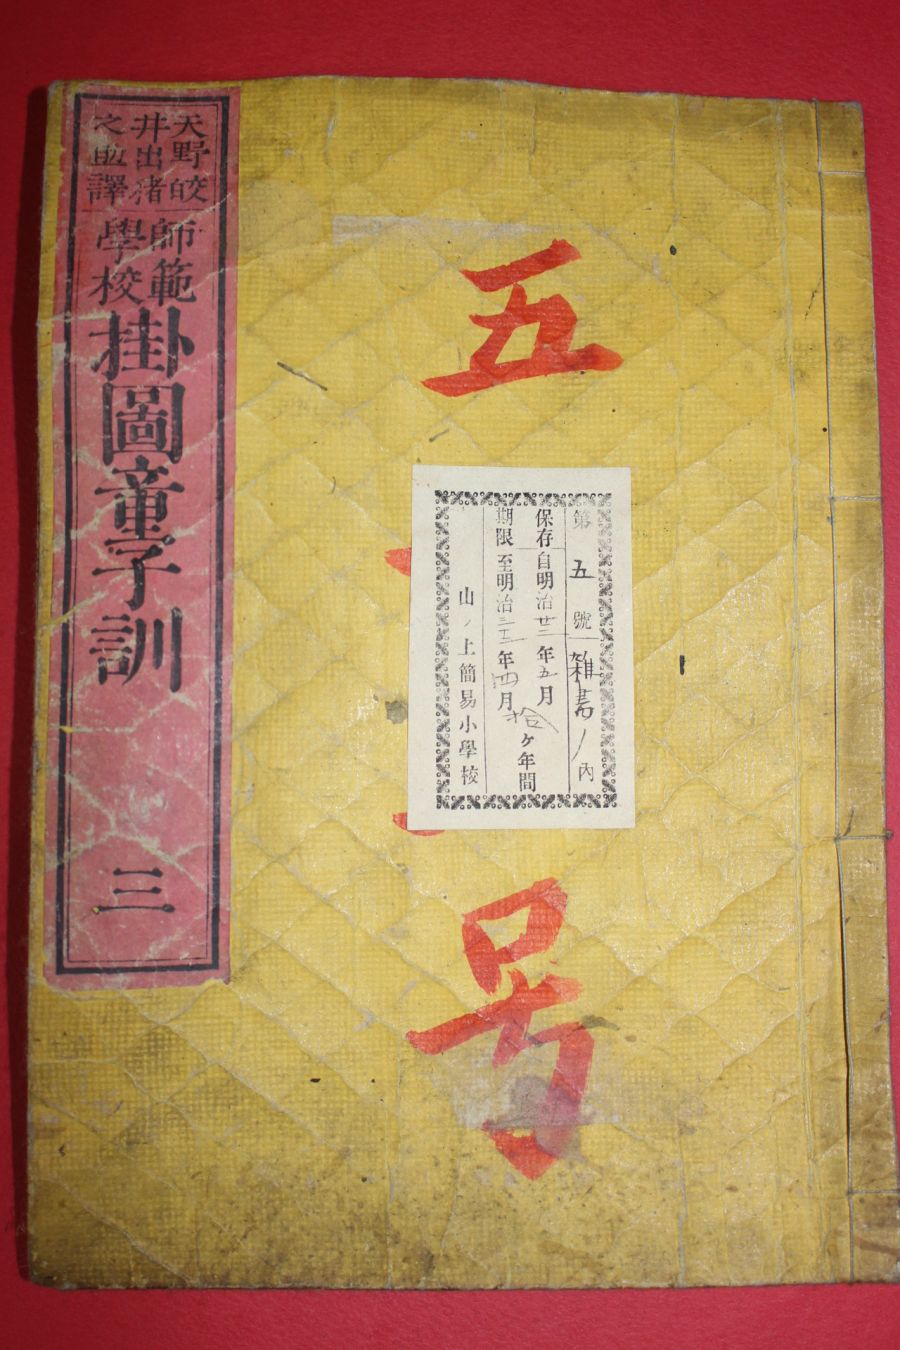 天野皎
井出猪
之助譯
師範
學校
掛圖童子訓
三
五
号
第五號雑書ノ內
保存自明治廿二年五月
期限至明治三十二年四月
拾ヶ年間
山ノ上簡易小學校